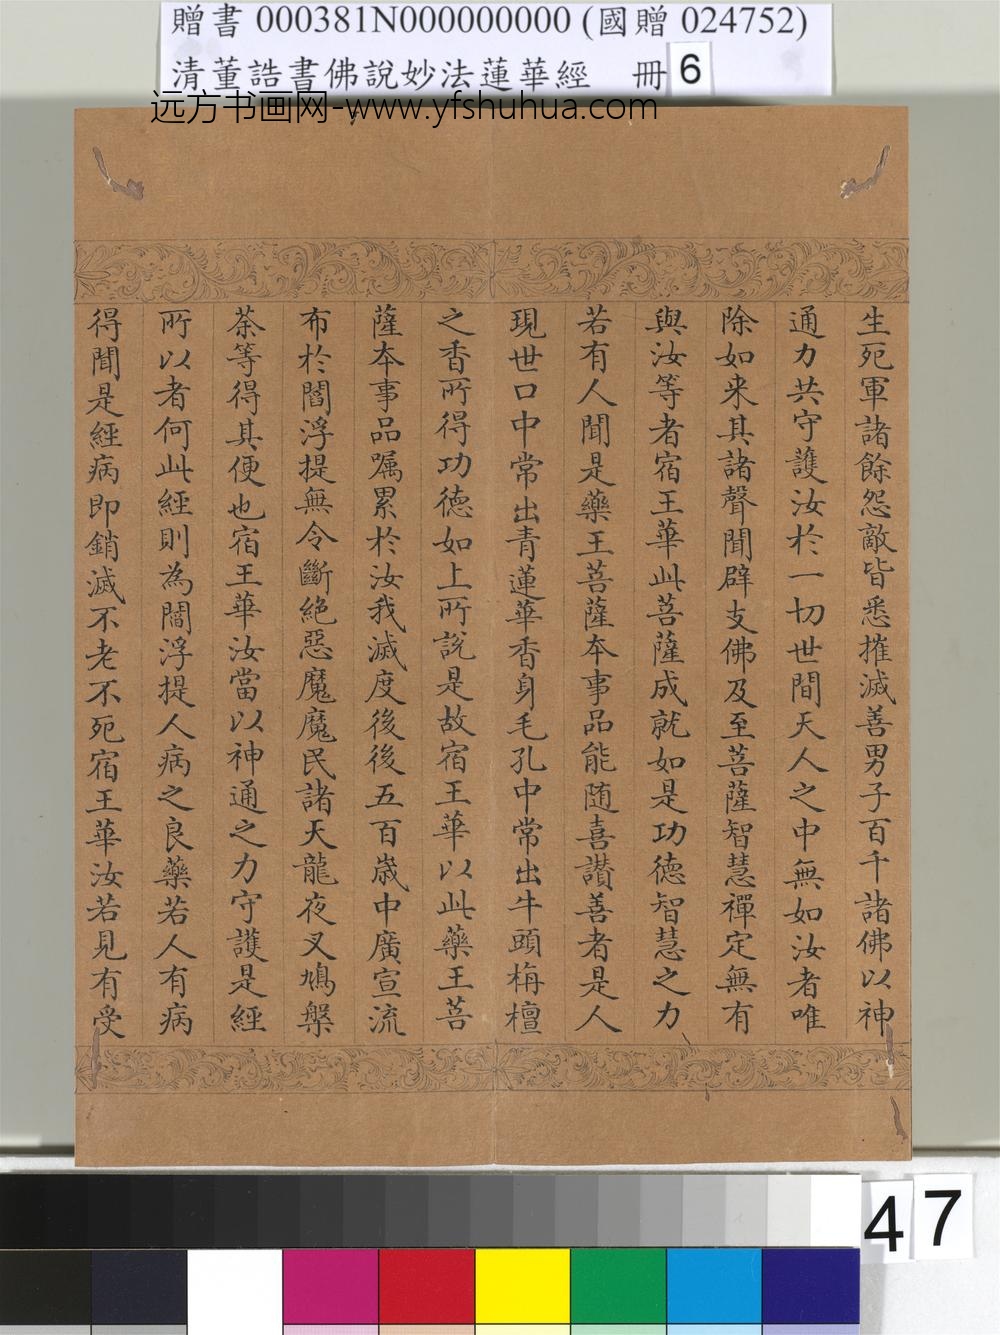 贈書 000381N000000000 (國贈 024752)
清董誥書佛說妙法蓮華經 冊 6
远方书画网-www.yfshuhua.com
生死軍諸餘怨敵皆悉摧滅善男子百千諸佛以神
通力共守護汝於一切世間天人之中無如汝者唯
除如来其諸聲聞辟支佛及至菩薩智慧禪定無有
與汝等者宿王華此菩薩成就如是功德智慧之力
若有人聞是藥王菩薩本事品能随喜讚善者是人
現世口中常出青蓮華香身毛孔中常出牛頭栴檀
之香所得功德如上所說是故宿王華以此藥王菩
薩本事品嘱累於汝我滅度後後五百歲中廣宣流
布於閻浮提無令斷絶惡魔魔民諸天龍夜叉鳩槃
荼等得其便也宿王華汝當以神通之力守護是經
所以者何此經則為閻浮提人病之良藥若人有病
得聞是經病即銷滅不老不死宿王華汝若見有受
47